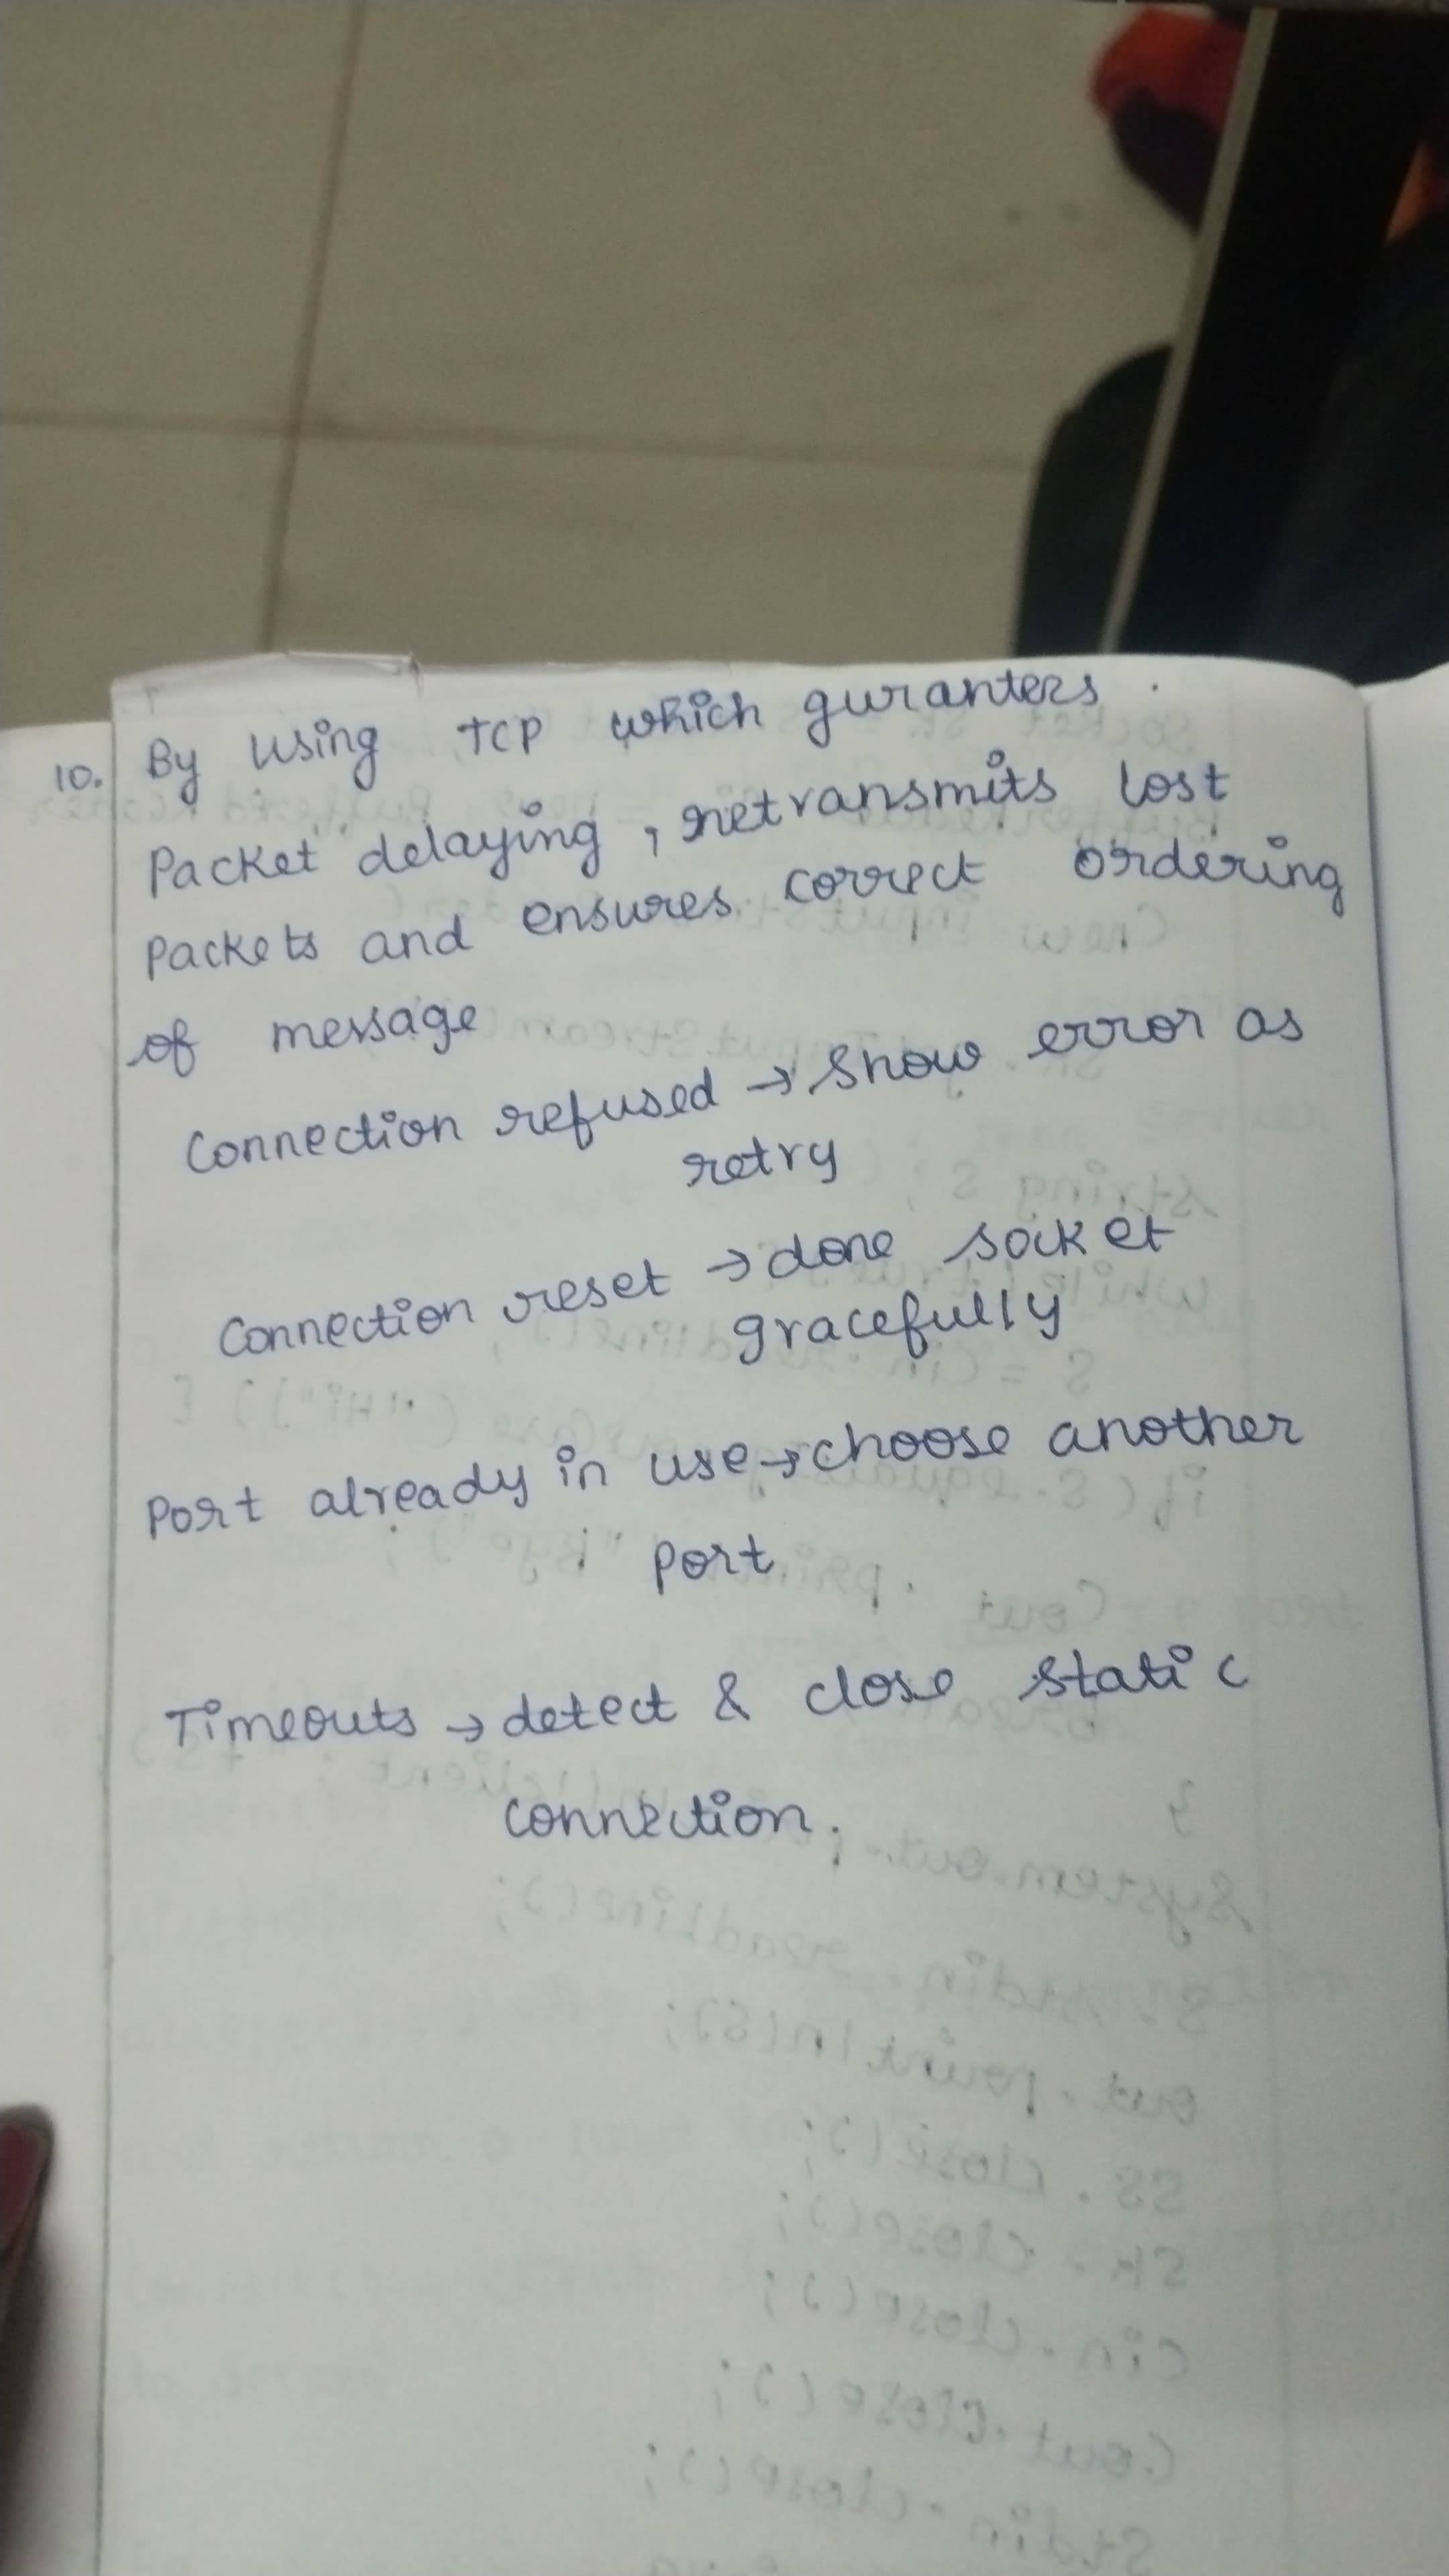 10. By using TCP which guranters.
Packet delaying, retransmits lost
packets and ensures correct ordering
of message
Connection refused → show error as
retry
Connection reset → done socket
gracefully
Port already in use → choose another
port
Timeouts → detect & close static
connection.